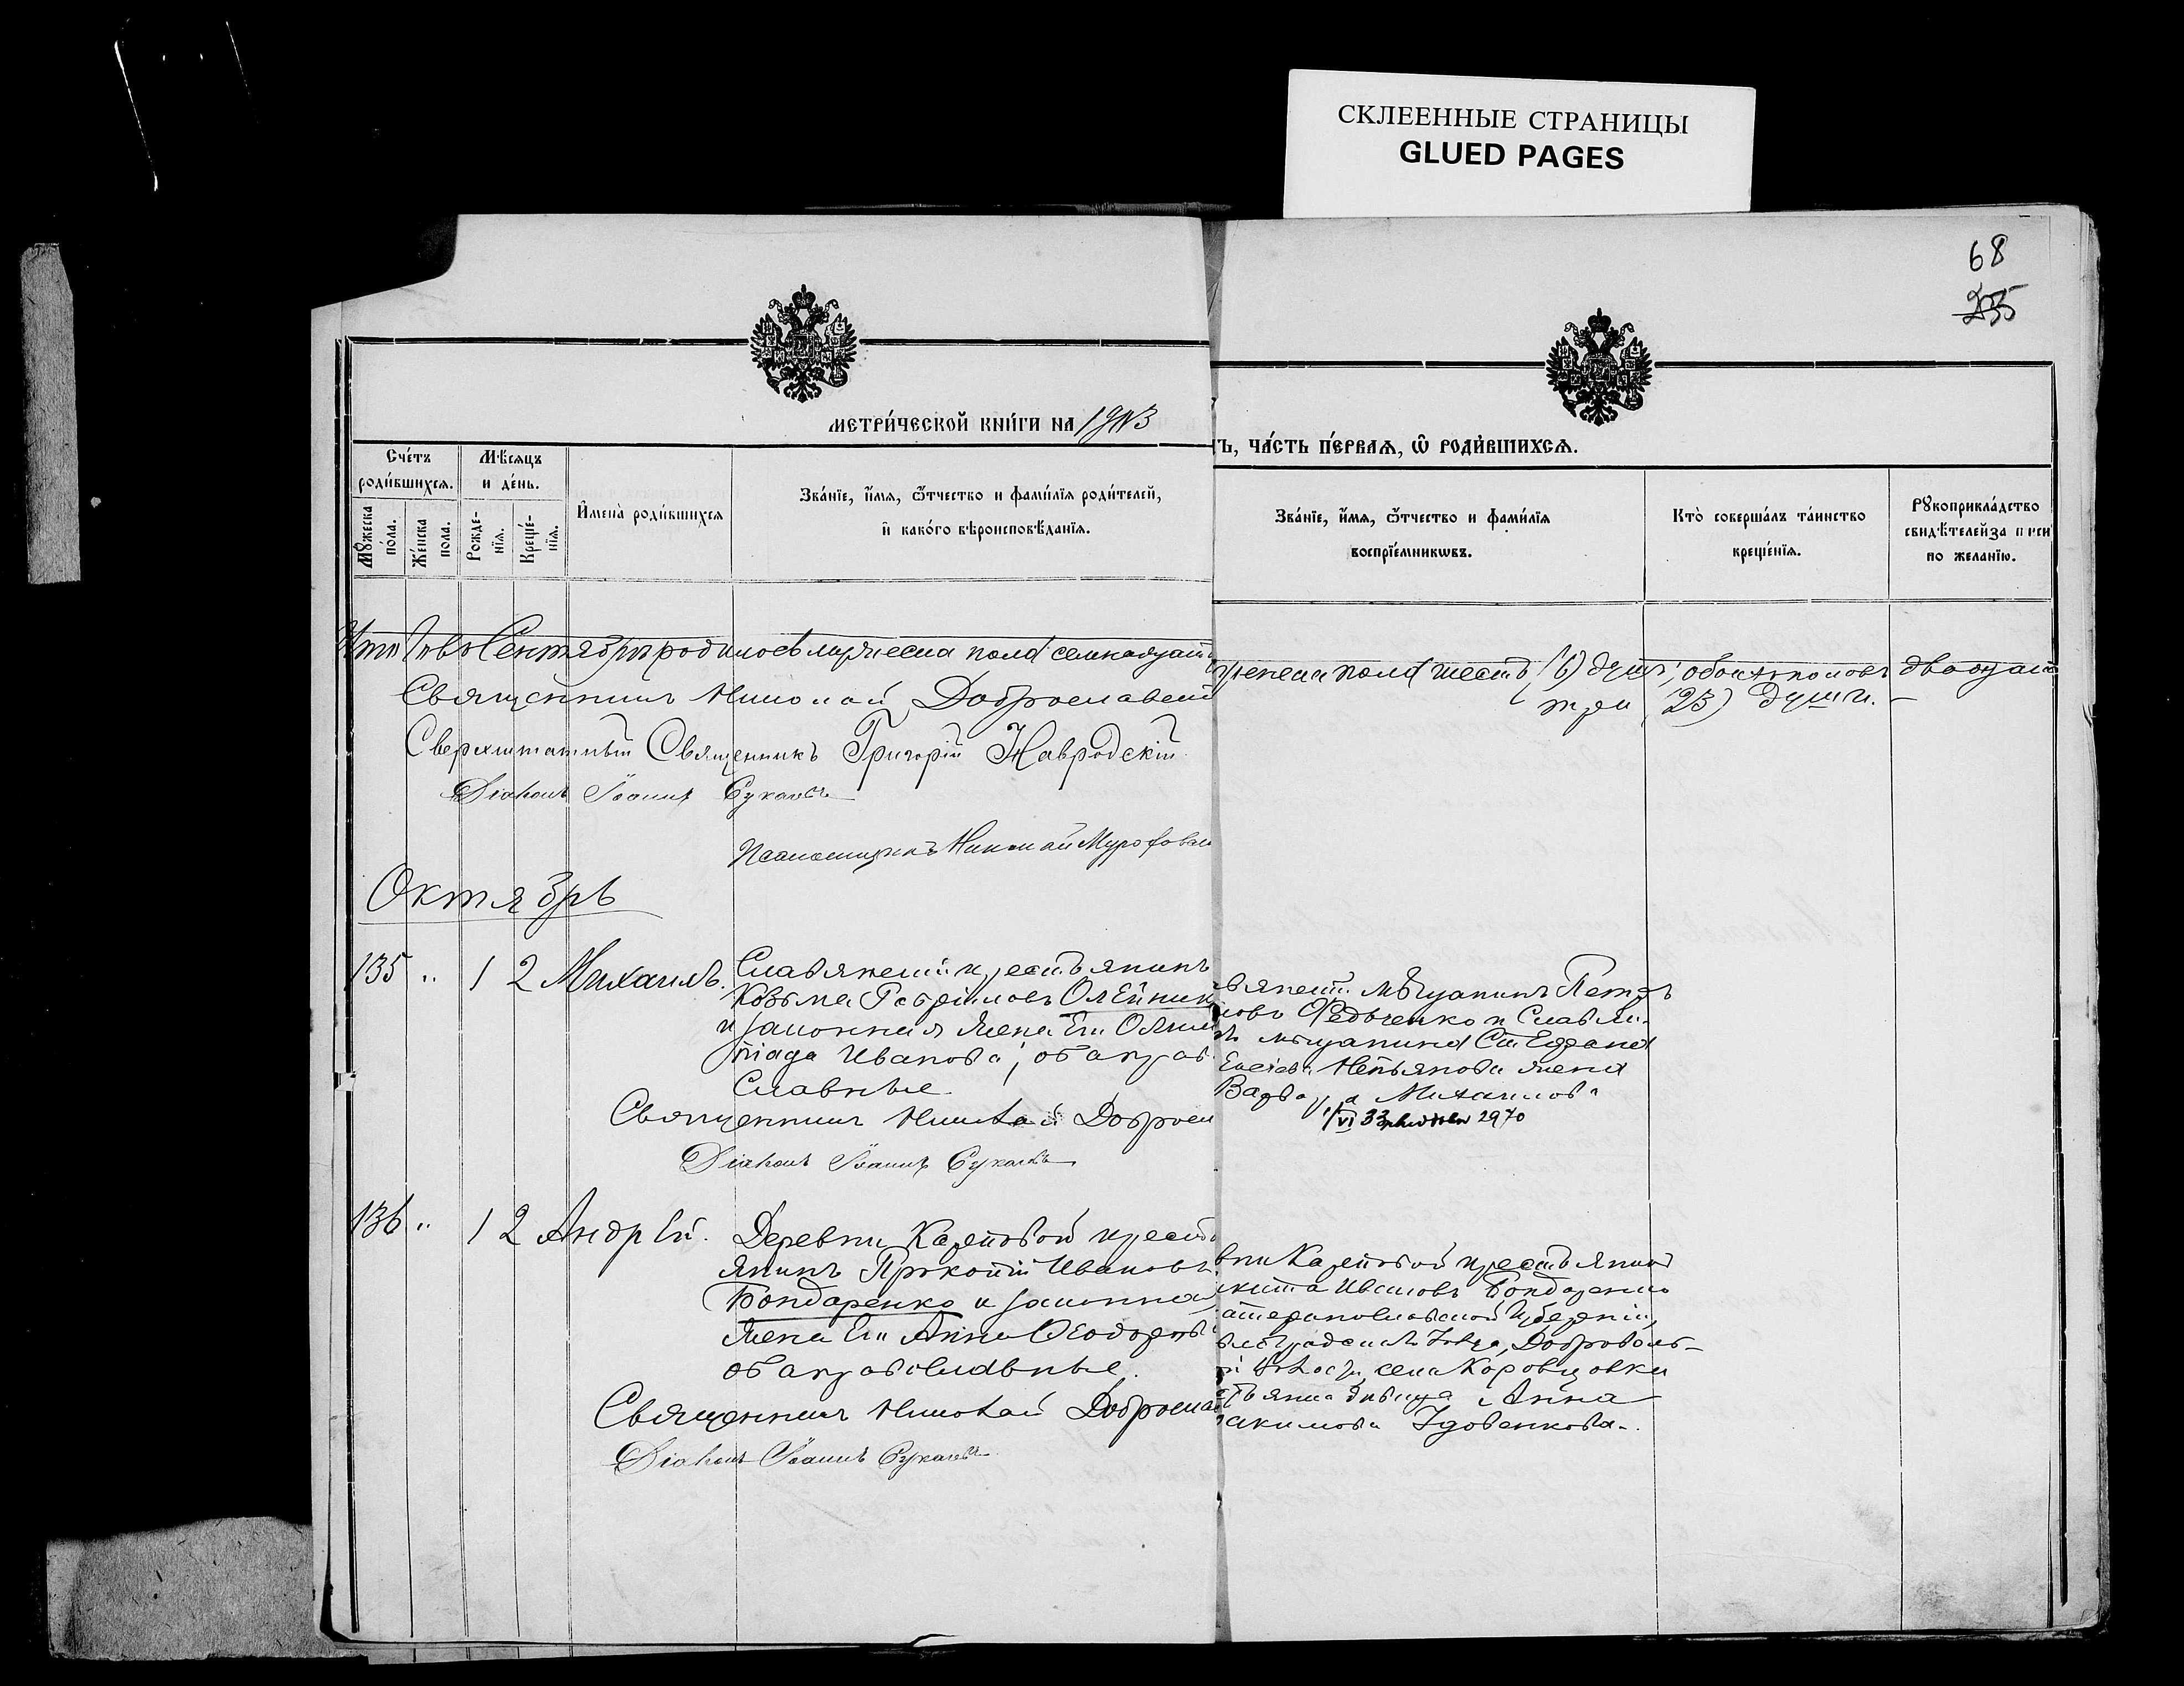 СКЛЕЕННЫЕ СТРАНИЦЫ
GLUED PAGES
68
235
МЕТРИ́ЧЕСКОЙ КНИ́ГИ НА 1913
Ъ, ЧА́СТЬ ПЕ́РВАѦ, Ѽ РОДИ́ВШИХСѦ.
Сче́тъ роди́вшихсѧ.
Мѣ́сѧцъ и де́нь.
Мꙋ́жеска по́ла.
Же́нска пола.
Рожде́нїѧ.
Креще́нїѧ.
И҆мена̀ роди́вшихсѧ
Зва́нїе, и҆́мѧ, ѻ҆́тчество и фами́лїѧ роди́телей,
и҆ како́го вѣроисповѣ́данїѧ.
Зва́нїе, и҆́мѧ, ѻ҆́тчество и фами́лїѧ
воспрїе́мникѡвъ.
Кто̀ соверша́лъ та́инство
креще́нїѧ.
Рꙋкоприкла́дство
свидѣ́телей запи́си
по жела́нїю.
Сентября родилось мужеска пола семнадцать
женска пола шесть (6) душъ, обоихъ половъ двадцать
три (23) души.
Священникъ Николай Доброславск
Сверхштатный Священникъ Григорій Навродскій
Діаконъ Іоаннъ
Псаломщикъ Николай
Октябрь
135 " 1 2 Михаилъ.
Славянскій крестьянинъ
Козьма Гавріиловъ Олейник
и законная жена его Олим
піада Иванова, оба право
славные
вянскій мѣщанинъ Петръ
ловъ Федченко и Славян
мѣщанина Стефана
жена
Варвара Михаилова
Священникъ Николай Добросл
VI 33 2970
Діаконъ Іоаннъ
136 " 1 2 Андрей.
Деревни Карповой крест
янинъ Прокопій Ивановъ
Бондаренко и законная
жена его Анна Ѳеодоров
оба православные.
вни Карповой крестьянинъ
кита Ивановъ Бондаренко
атеринославской губерніи,
градскаго уѣзда, Доброволь-
й вол. села
стьянка дѣвица Анна
акимова
Священникъ Николай Доброслав
Діаконъ Іоаннъ